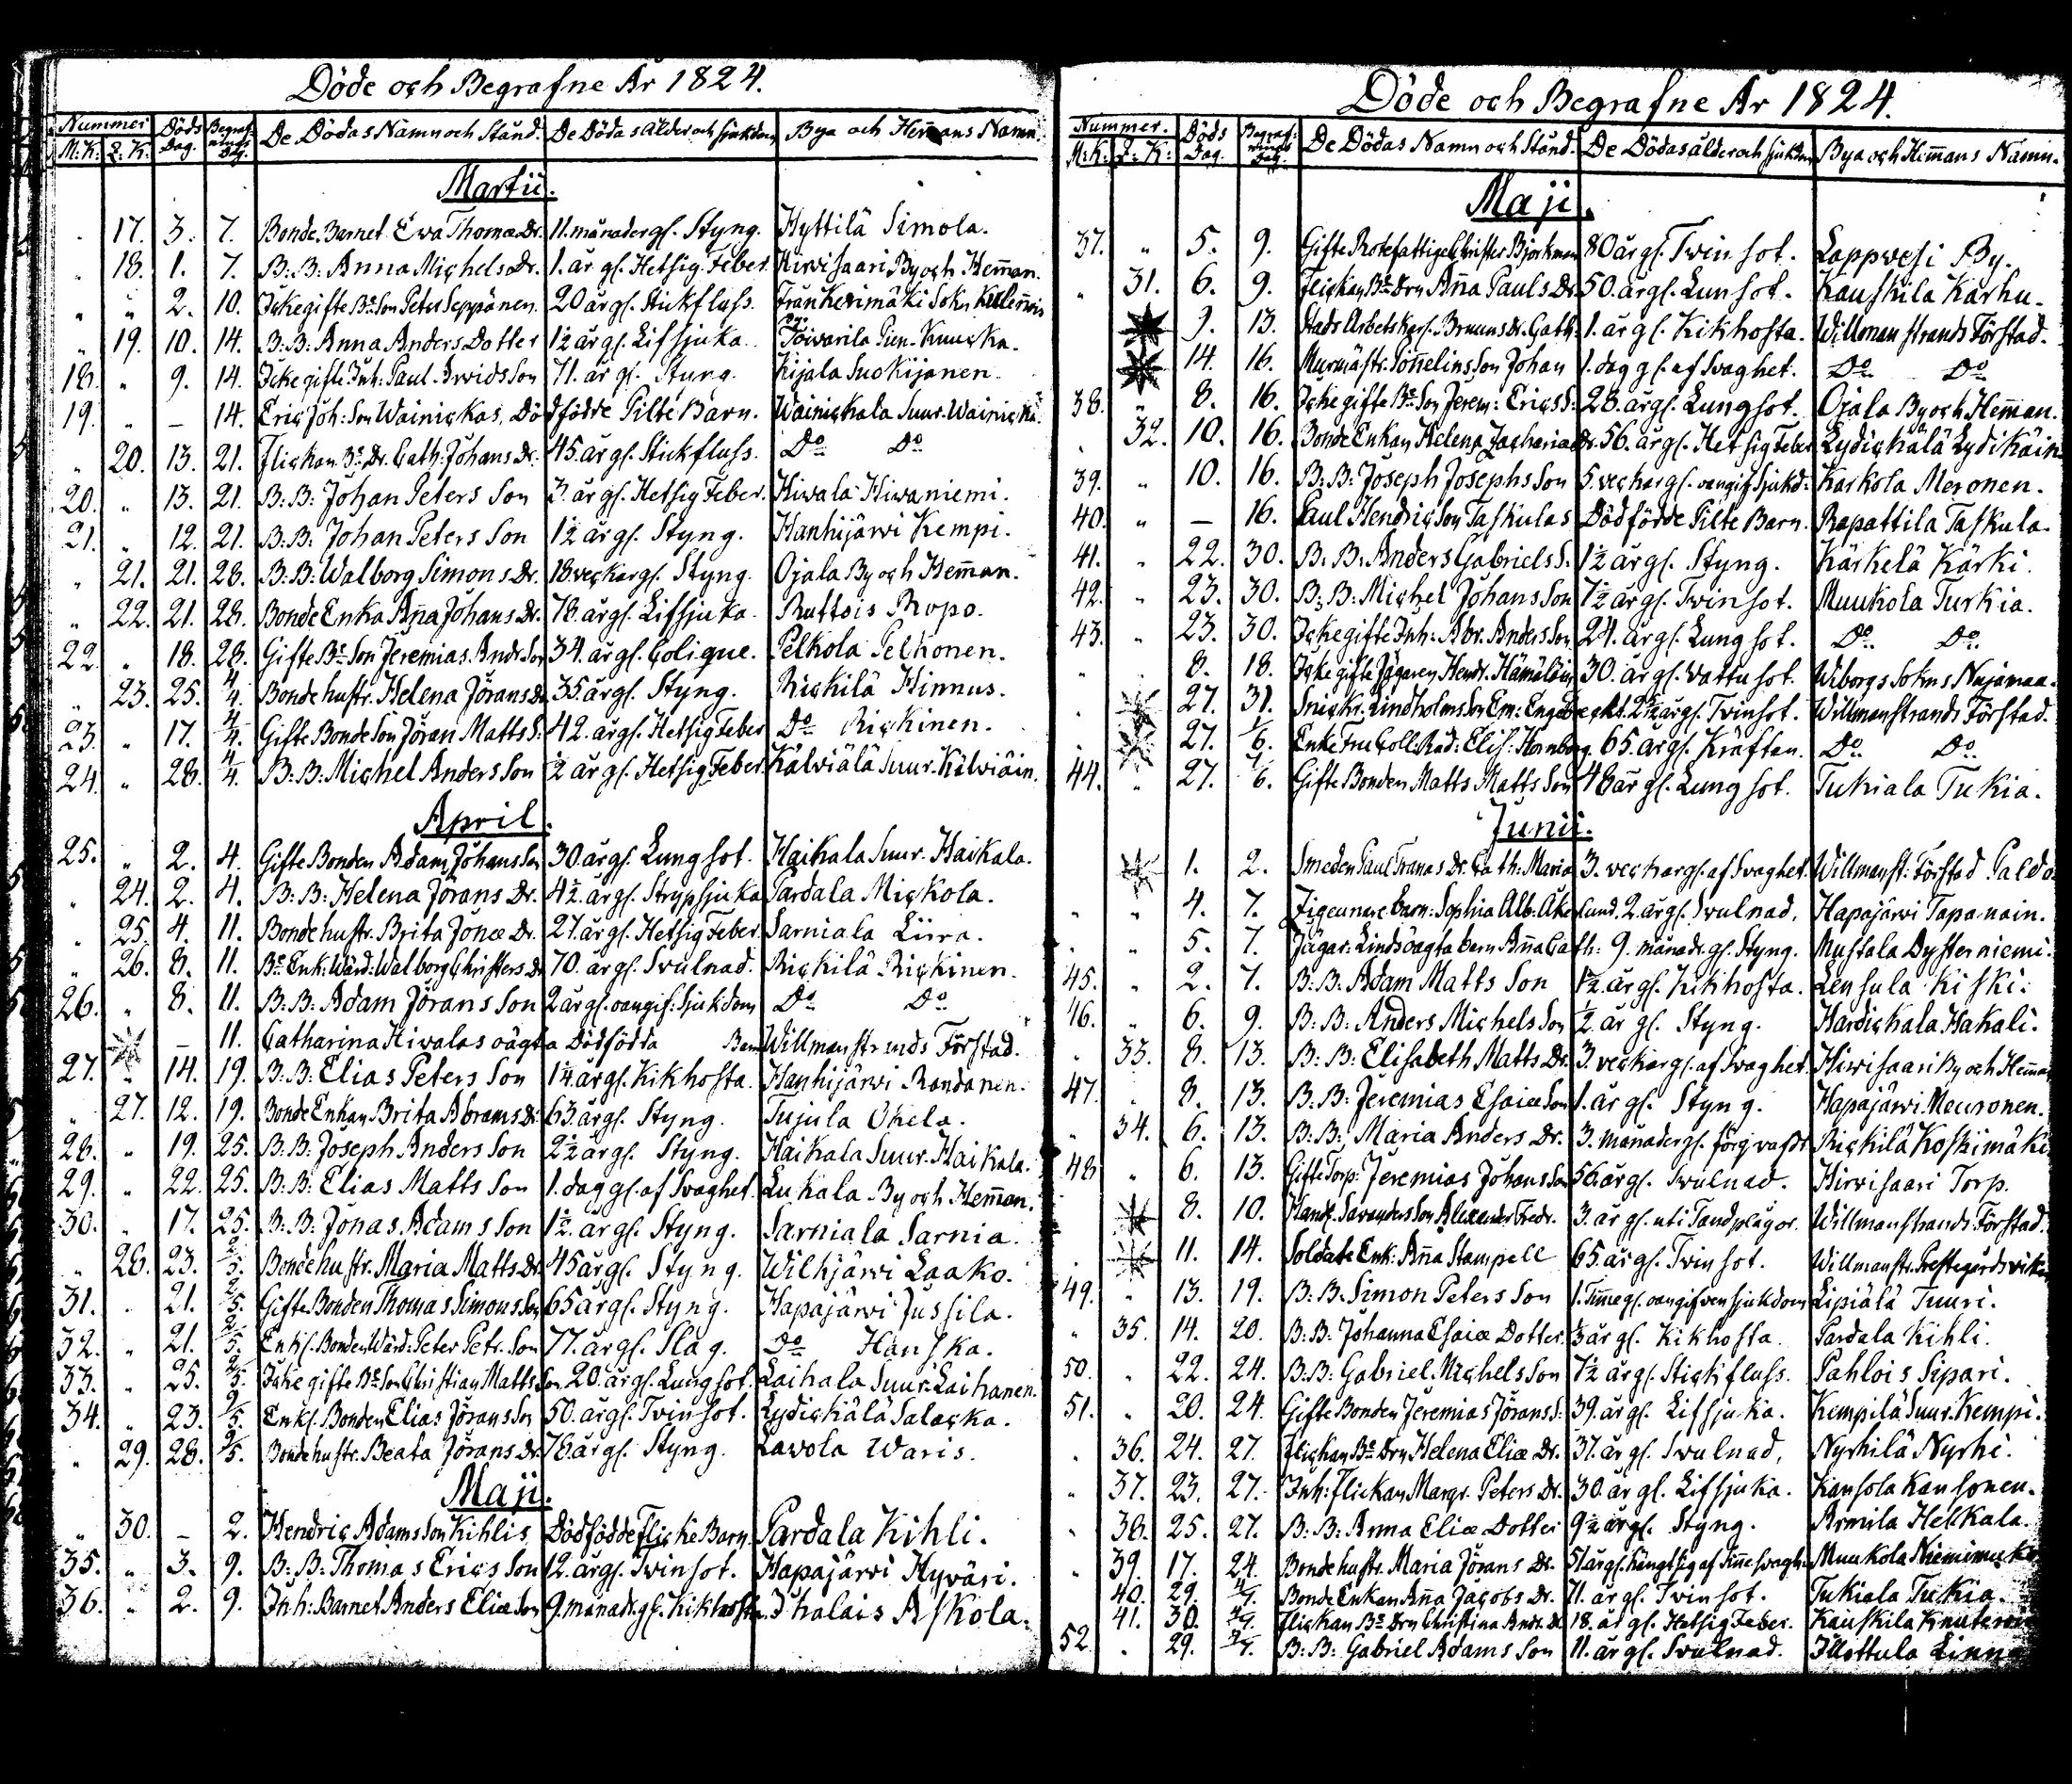 Döde och Begrafne År 1824.
Nummer Döds Dag. Begrafnings Dag. De Dödas Namn och Stånd. De Dödas ålder och sjukdom Bya och Hem̄ans Namn.
M:K: Q:K:
Martii.
17. 3. 7. Bonde Barnet Eva Thomæ Dr. 11. månader gl. Styng. Hyttilä Simola.
„ 18. 1. 7. B:B: Anna Michels Dr. 1. år gl. Hetsig Feber Hirvisaari By och Hem̄an.
„ „ 2. 10. Icke gifte Be Son Peter Seppänen. 20 år gl. Stickfluss. Från Kerimäki Sokn
„ 19. 10. 14. B:B: Anna Anders Dotter 1½ år gl. Lifsjuka. Toivarila Pien-Kuucka.
18. „ 9. 14. Icke gifte Inh: Paul Arvids Son 71. år gl. Styng. Kijala Suckijanen.
19. „ – 14. Eric Joh: Son Wainickas, Dödfödde Pilte Barn. Wainickala Suur-Wainicka.
„ 20. 13. 21. Flickan Be Dr. Cath. Johans Dr. 45. år gl. Stickfluss. Do Do
20. „ 13. 21. B:B: Johan Peters Son 3. år gl. Hetsig Feber. Hiwala Hiwaniemi.
21. „ 12. 21. B:B: Johan Peters Son 1½ år gl. Styng. Hanhijärwi Kempi.
„ 21. 21. 28. B:B: Walborg Simons Dr. 18. veckor gl. Styng. Ojala By och Hem̄an.
„ 22. 21. 28. Bonde Enka An̄a Johans Dr. 78. år gl. Lifsjuka. Ruttois Ropo.
22. „ 18. 28. Gifte Be Son Jeremias Andr. Son 34. år gl. Colique. Pelkola Pelkonen.
„ 23. 25. 4/4. Bonde hustr. Helena Jörans Dr 35. år gl. Styng. Rickilä Hinnus.
23. „ 17. 4/4. Gifte Bonde Son Jöran Matts S: 42. år gl. Hetsig Feber Do Rickinen.
24. „ 28. 4/4. B:B: Michel Anders Son ½ år gl. Hetsig Feber Kälviälä Suur-Kälviäin.
April.
25. „ 2. 4. Gifte Bonden Adam Johans Son 30. år gl. Lungsot. Haikala Suur-Haikala.
„ 24. 2. 4. B:B: Helena Jörans Dr. 4½ år gl. Strypsjuka Pardala Mickola.
„ 25. 4. 11. Bonde hustr. Brita Jonæ Dr. 27. år gl. Hetsig Feber. Sarniala Liira.
„ 26. 8. 11. Be Enk: Wärd: Walborg Christers Dr 70. år gl. Svulnad. Rickilä Rickinen.
26. „ 8. 11. B:B: Adam Jörans Son 2 år gl. oangif: sjukdom Do Do
– 11. Catharina Hiwalas oägta Dödfödda Barn Willmanstrands Förstad.
27. „ 14. 19. B:B: Elias Peters Son 1¼ år gl. Kikhosta. Hanhijärwi Randanen.
„ 27. 12. 19. Bonde Enkan Brita Abrams Dr 63. år gl. Styng. Tujula Okela.
28. „ 19. 25. B:B. Joseph Anders Son 2½ år gl. Styng. Haikala Suur-Haikala.
29. „ 22. 25. B:B: Elias Matts Son 1. dag gl. af Svaghet. Lukala By och Hem̄an.
30. „ 17. 25. B:B: Jonas Adams Son 1½ år gl. Styng. Sarniala Sarnia.
„ 28. 23. 2/5. Bonde hustr. Maria Matts Dr 45 år gl. Styng. Wilkjärvi Laako.
31. „ 21. 2/5. Gifte Bonden Thomas Simons Son 65 år gl. Styng. Hapajärwi Jussila.
32. „ 21. 2/5. Enkl. Bonden Wärd: Peter Petr. Son 77. år gl. Slag. Do Hanska.
33. „ 25. 2/5. Icke gifte Be Son Christian Matts Son. 20. år gl. Lungsot. Laihala Suur-Laihanen.
34. „ 23. 9/5. Enkl. Bonden Elias Jörans Son 50. år gl. Tvinsot. Lydickälä Salacka.
„ 29. 28. 9/5. Bonde hustr. Beata Jörans Dr. 76. år gl. Styng. Lavola Waris.
Maji.
„ 30. – 2. Hendric Adams Son Kihlis Dödfödde Flicke Barn. Pardala Kihli.
35. „ 3. 9. B:B: Thomas Erics Son 12. år gl. Tvinsot. Hapajärvi Hyväri.
36. „ 2. 9. Inh: Barnet Anders Eliæ Son 9. månad. gl. Kikhosta. Ihalais Askola.
Döde och Begrafne År 1824.
Nummer. Döds Dag. Begrafnings Dag. De Dödas Namn och Stånd. De Dödas ålder och sjukdom Bya och Hem̄ans Namn.
M:K: Q:K:
Maji.
37. „ 5. 9. Gifte Rotefattige Christer Björkman 80 år gl. Tvinsot. Lappvesi By.
„ 31. 6. 9. Flickan Be Drn An̄a Pauls Dr 50. år gl. Lunsot. Kauskila Karhu.
9. 13. Stads Arbetskarl. Bruuns Dr. Cath: 1. år gl. Kikhosta. Willmanstrands Förstad.
14. 16. Murmästr. Tön̄elins Son Johan 1. dag gl. af Svaghet. Do Do
38. „ 8. 16. Icke gifte Be Son Jerem: Erics S: 28. år gl. Lungsot. Ojala By och Hem̄an.
32. 10. 16. Bonde Enkan Helena Zachariæ Dr. 56. år gl. Hetsig Feber Lydickälä Lydikäin
39. „ 10. 16. B:B: Joseph Josephs Son 5. veckor gl. oangif. Sjukd: Karkola Meronen.
40. „ – 16. Paul Hendrics Son Taskulas Dödfödde Pilte Barn. Rapattila Taskula.
41. „ 22. 30. B:B: Anders Gabriels S. 1½ år gl. Styng. Kärkelä Kärki.
42. „ 23. 30. B:B: Michel Johans Son 7½ år gl. Tvinsot. Muukola Turkia.
43. „ 23. 30. Icke gifte Inh: Abr. Anders Son 24. år gl. Lungsot. Do Do
„ 8. 18. Icke gifte Jägaren Hendr. Hämäläin 30. år gl. Vattusot. Wiborgs Sokns Nujamaa.
27. 31. Snickr. Lindholms Son Em: Engebreckt. 2½ år gl. Tvinsot. Willmanstrands Förstad.
27. 1/6. Enke Fru Coll. Råd: Elis: Hornborg. 65. år gl. Kräftan. Do Do
44. „ 27. /6. Gifte Bonden Matts Matts Son 48 år gl. Lungsot. Tukiala Tukia.
Junii.
1. 2. Smeden Paul Tranas Dr. Cath: Maria 3. veckor gl. af Svaghet. Willmanst: Förstad
„ „ 4. 7. Zigeunare barn: Sophia Alb. Åkerlund. 2. år gl. Svulnad. Hapajärvi Tapanain.
„ 5. 7. Jägar: Linds oägta barn An̄a Cath: 9. månad. gl. Styng. Mustala Dysterniemi.
45. „ 2. 7. B:B: Adam Matts Son 1½ år gl. Kikhosta. Lensula Kiski.
46. „ 6. 9. B:B: Anders Michels Son ½ år gl. Styng. Hardickala Hakali.
„ 33. 8. 13. B:B: Elisabeth Matts Dr. 3. veckor gl. af Svaghet. Hirvisaari By och Hem̄an
47. „ 8. 13. B:B: Jeremias Esaiæ Son 1. år gl. Styng. Hapajärvi Meuronen.
„ 34. 6. 13. B:B: Maria Anders Dr. 3. månader gl. Rickilä Koskimäki
48 „ 6. 13. Gifte Torp: Jeremias Johans Son 56. år gl. Svulnad. Hirvisaari Torp.
8. 10. Handl. Savanders Son Alexander Fredr. 3. år gl. uti Tandplågor. Willmanstrands Förstad.
11. 14. Soldate Enk: An̄a Stampell 65. år gl. Tvinsot. Willmanstr. Prestegårdsviken
49. „ 13. 19. B:B: Simon Peters Son 1. Tim̄e gl. oangifven sjukdom Lipiälä Tuuri.
„ 35. 14. 20. B:B: Johanna Esaiæ Dotter. ½ år gl. Kikhosta. Pardala Kihli.
50. „ 22. 24. B:B: Gabriel Michels Son 7½ år gl. Stickfluss. Pahlois Sipari.
51. „ 20. 24. Gifte Bonden Jeremias Jörans S: 39. år gl. Lifsjuka. Kempilä Suur-Kempi.
„ 36. 24. 27. Flickan Be Drn Helena Eliæ Dr. 37. år gl. Svulnad. Nyrhilä Nyrhi.
„ 37. 23. 27. Inh: Flickan Margr. Peters Dr. 30. år gl. Lifsjuka. Kansola Kansonen.
„ 38. 25. 27. B:B: Anna Eliæ Dotter 9½ år gl. Styng. Armila Helkala.
„ 39. 17. 24. Bonde hustr. Maria Jörans Dr. 51 år gl. hängt sig af Sin̄e svaghet Muukola Niemimucko
„ 40. 29. 4/7. Bonde Enkan An̄a Jacobs Dr. 71. år gl. Tvinsot. Tukiala Tukia.
41. 30. 4/7. Flickan Be Drn Christina Andr. Dr. 18. år gl. Hetsig Feber. Kauskila
52. „ 29. 4/7. B:B: Gabriel Adams Son 11. år gl. Svulnad. Ilottula Linna